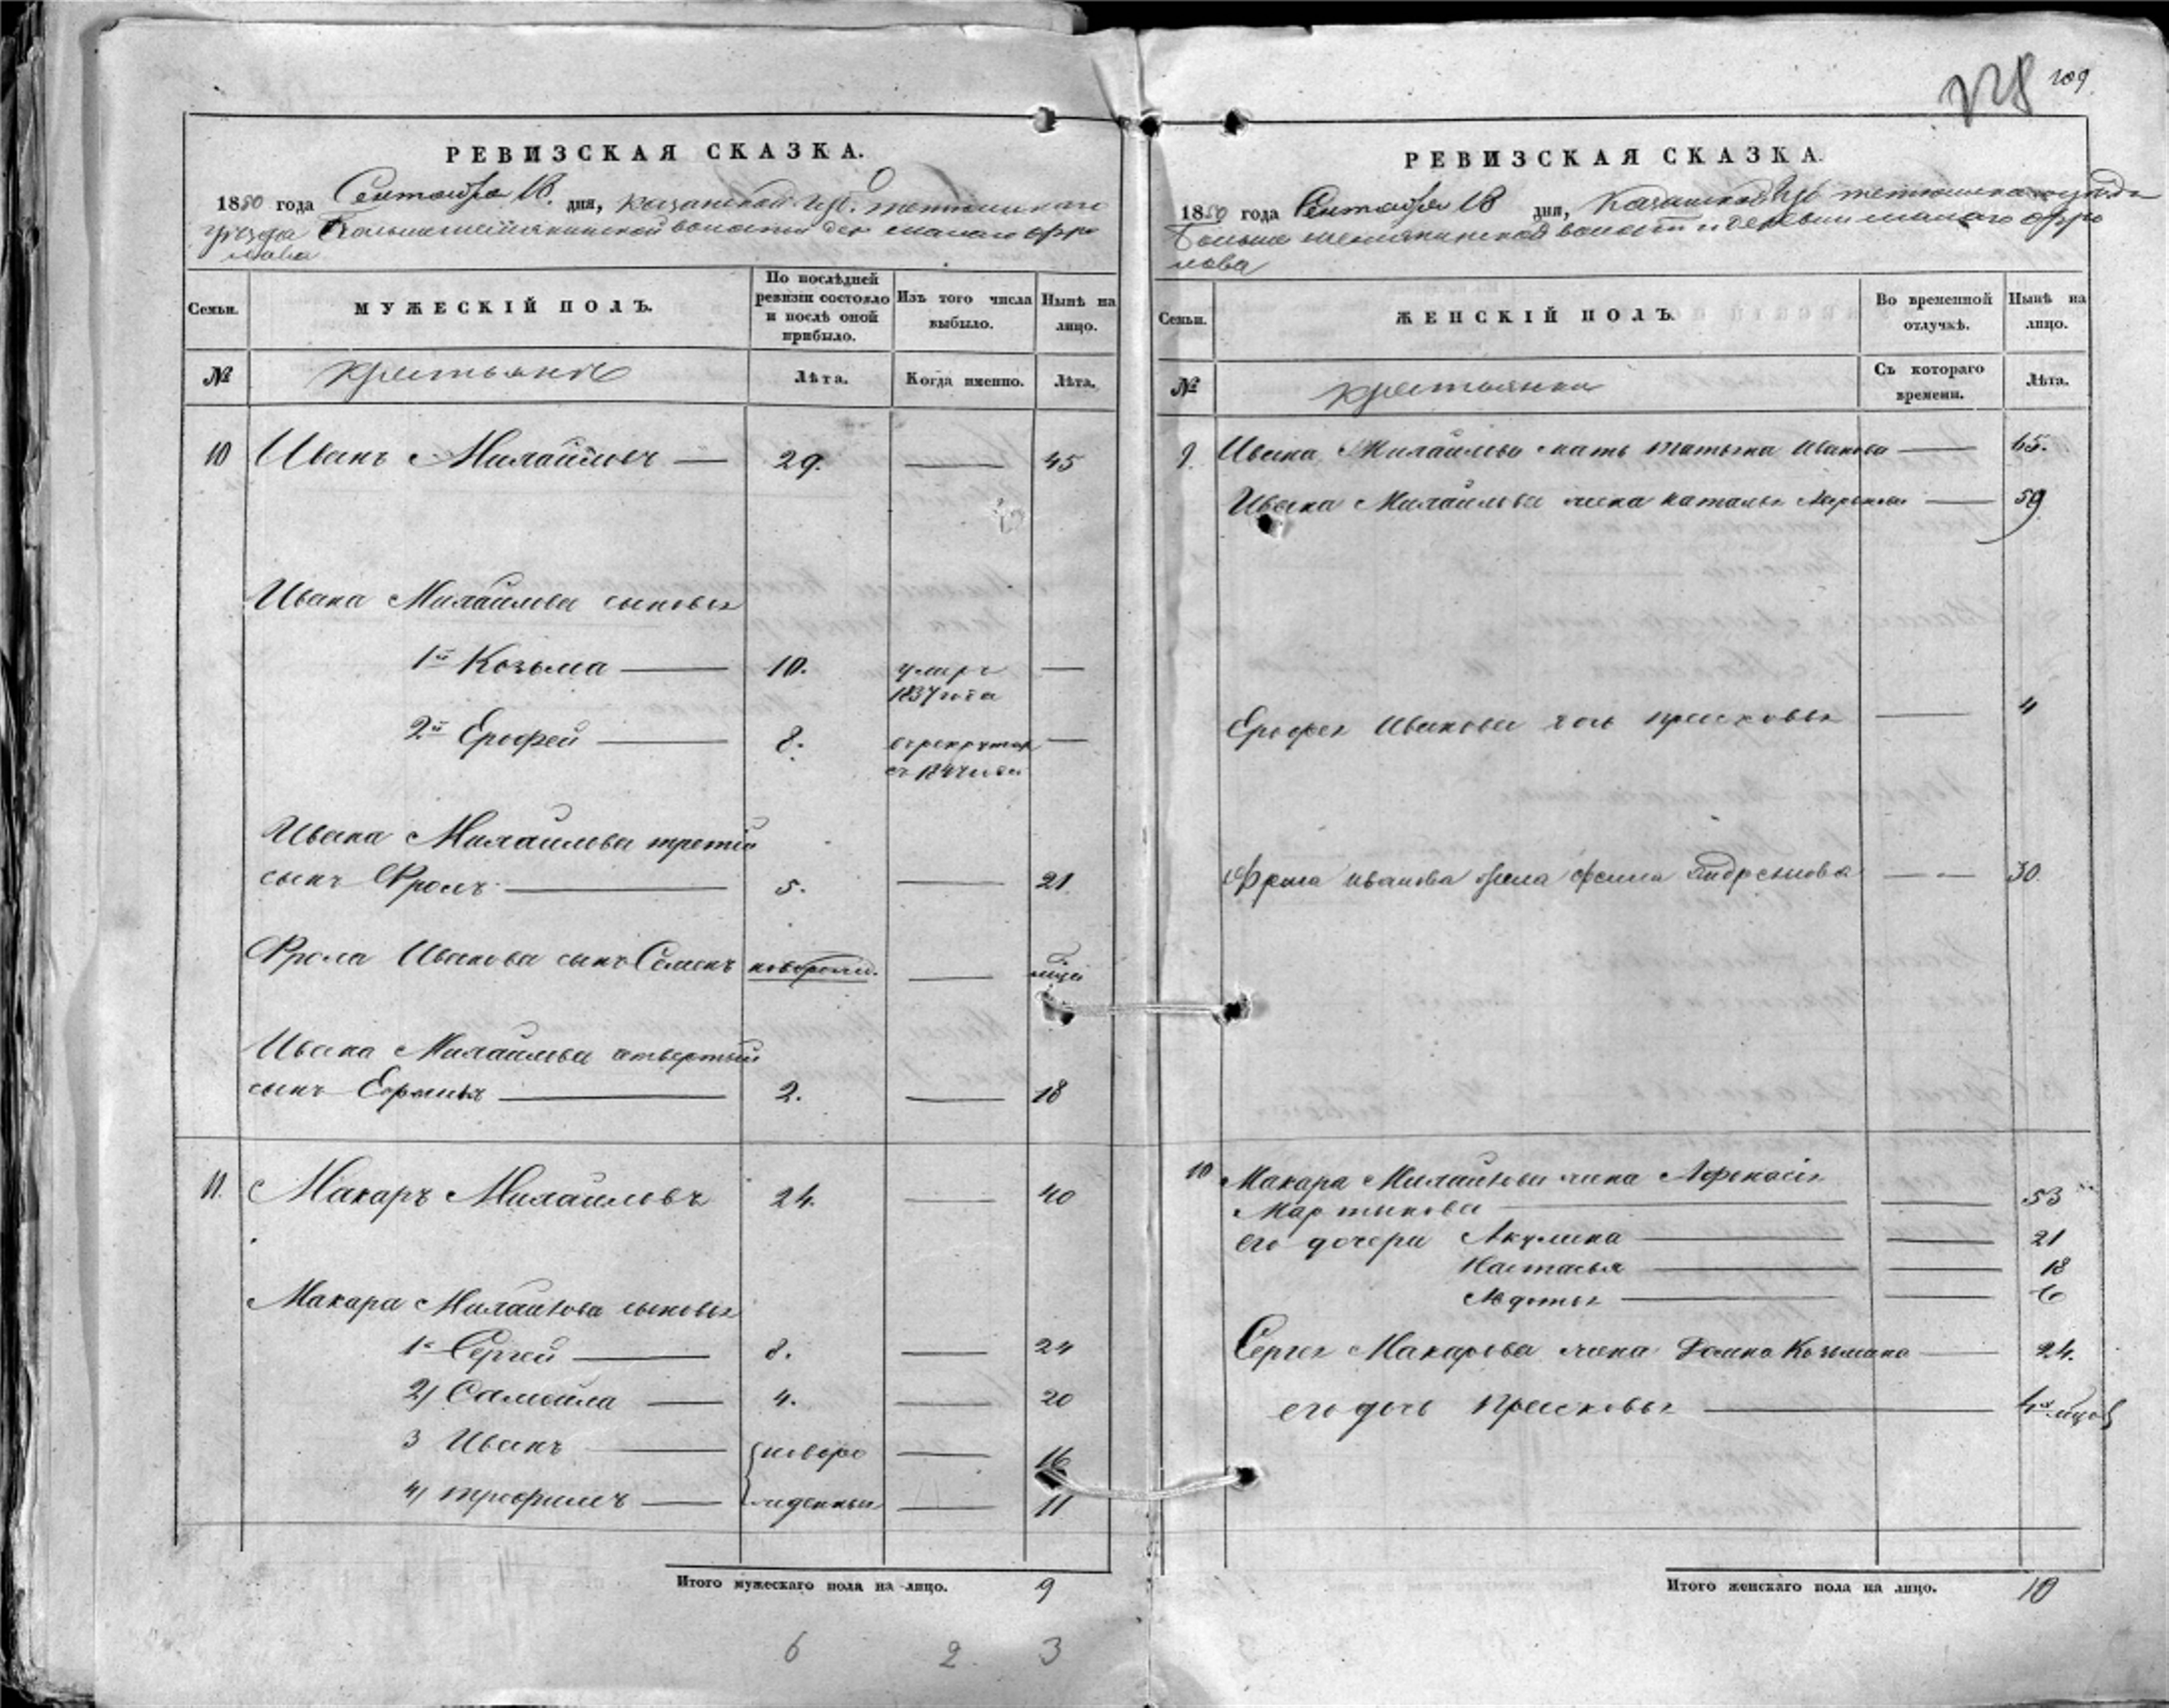 228 209
РЕВИЗСКАЯ СКАЗКА.
1850 года Сентября 18. дня, Казанской губ. тетюшскаго
уѣзда Больше шемякинской волости дер малаго Фро
лова
Семьи. МУЖЕСКІЙ ПОЛЪ. По послѣдней ревизіи состояло и послѣ оной прибыло. Изъ того числа выбыло. Нынѣ на лицо.
№ крестьяне Лѣта. Когда именно. Лѣта.
10 Иванъ Михайловъ — 29. — 45
Ивана Михайлова сыновья
1й Козьма — 10. умеръ —
1837 года
2й Ерофей — 8. въ рекрутах —
съ 184 года
Ивана Михайлова третій
сынъ Фролъ — 5. — 21.
Фрола Иванова сынъ Семенъ новорожд. —
Ивана Михайлова четвертый
сынъ — 2. — 18
11. Макаръ Михайловъ 24. — 40
Макара Михайлова сыновья
1й Сергей — 8. — 24
2) Самойла — 4. — 20
3 Иванъ — { новоро — 16
4) трофимъ — жденныи — 11
Итого мужескаго пола на лицо. 9
6 2. 3
РЕВИЗСКАЯ СКАЗКА.
1850 года Сентября 18 дня, Казанской губ тетюшскаго уѣзда
Больше шемякинской волости деревни малаго Фро
лова
Семьи. ЖЕНСКІЙ ПОЛЪ. Во временной отлучкѣ. Нынѣ на лицо.
№ крестьянки Съ котораго времени. Лѣта.
9. Ивана Михайлова мать татьяна Иванова — 65.
Ивана Михайлова жена наталья — 59
Ерофея Иванова дочь прасковья — 4
Фрола иванова жена Андреянова — 30.
10 Макара Михайлова жена Афонасія
Мартынова — 53
его дочери Акулина — 21
Настасья — 18
Авдотья — 6
Сергея Макарова жена Домна Козьмина — 24.
его дочь прасковья — 4х мцов
Итого женскаго пола на лицо. 10